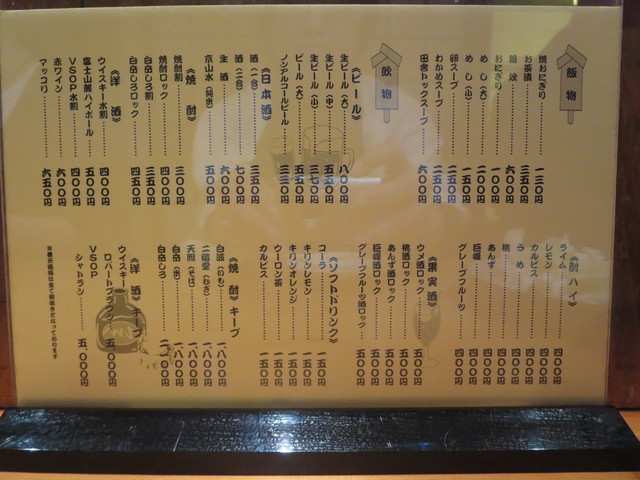 飯物
焼おにぎり 一三〇円
お茶漬 三五〇円
雑炊 六〇〇円
おにぎり 一〇〇円
めし(大) 二〇〇円
めし(小) 一五〇円
卵スープ 二五〇円
わかめスープ 二五〇円
田舎トックスープ 六五〇円
飲物
《ビール》
生ビール(大) 八〇〇円
生ビール(中) 五五〇円
生ビール(小) 三七〇円
ビール(大) 五五〇円
ノンアルコールビール 三三〇円
《日本酒》
酒(一合) 三五〇円
酒(二合) 七〇〇円
生酒 六〇〇円
京山水(純米) 五〇〇円
《焼酎》
焼酎割 三〇〇円
焼酎ロック 四〇〇円
白岳しろ割 三五〇円
白岳しろロック 四五〇円
《洋酒》
ウイスキー水割 四〇〇円
富士山麓ハイボール 五〇〇円
VSOP水割 四〇〇円
赤ワイン 六〇〇円
マッコリ 六五〇円
《酎ハイ》
ライム 四〇〇円
レモン 四〇〇円
カルピス 四〇〇円
うめ 四〇〇円
桃 四〇〇円
あんず 四〇〇円
巨峰 四〇〇円
グレープフルーツ 四〇〇円
《果実酒》
ウメ酒ロック 五〇〇円
桃酒ロック 五〇〇円
あんず酒ロック 五〇〇円
巨峰酒ロック 五〇〇円
グレープフルーツ酒ロック 五〇〇円
《ソフトドリンク》
コーラ 一五〇円
キリンレモン 一五〇円
キリンオレンジ 一五〇円
ウーロン茶 一五〇円
カルピス 一五〇円
《焼酎》キープ
白波(いも) 一、八〇〇円
二階堂(むぎ) 一、八〇〇円
天照(そば) 一、八〇〇円
白岳(米) 一、八〇〇円
白岳しろ 二、二〇〇円
《洋酒》キープ
ウイスキー
ロバートブラウン 五、〇〇〇円
VSOP
シャトラン 五、〇〇〇円
※表示価格は全て税抜きとなっております